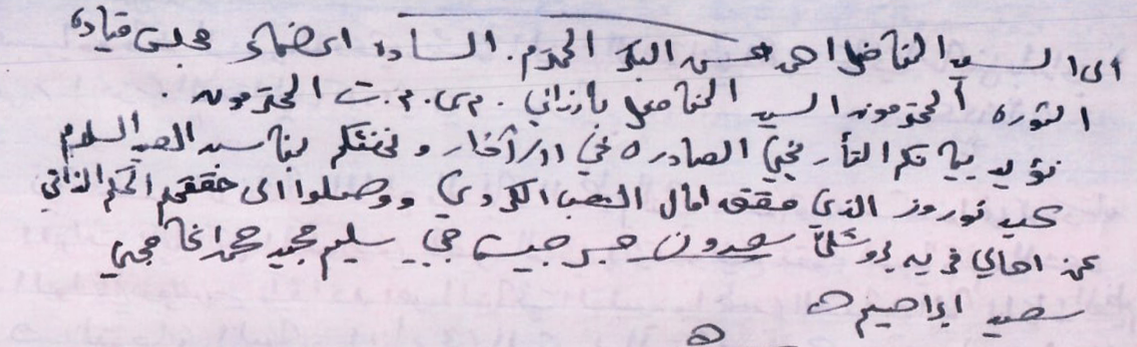 الى السيد المناضل احمد حسن البكر المحترم. السادة اعضاء مجلس قيادة
الثورة المحترمون السيد المناضل بارزاني. م.ى.م.ت المحترمون
نؤيد بيانكم التأريخي الصادرة في ١١/آذار ونهنئكم بمناسبة العيد السلام
عيد نوروز الذي حقق امال الشعب الكردي ووصلوا الى حققهم الحكم الذاتي
عن اهالي قرية سعدون جرجيس سليم مجيد محمد
سعيد ابراهيم